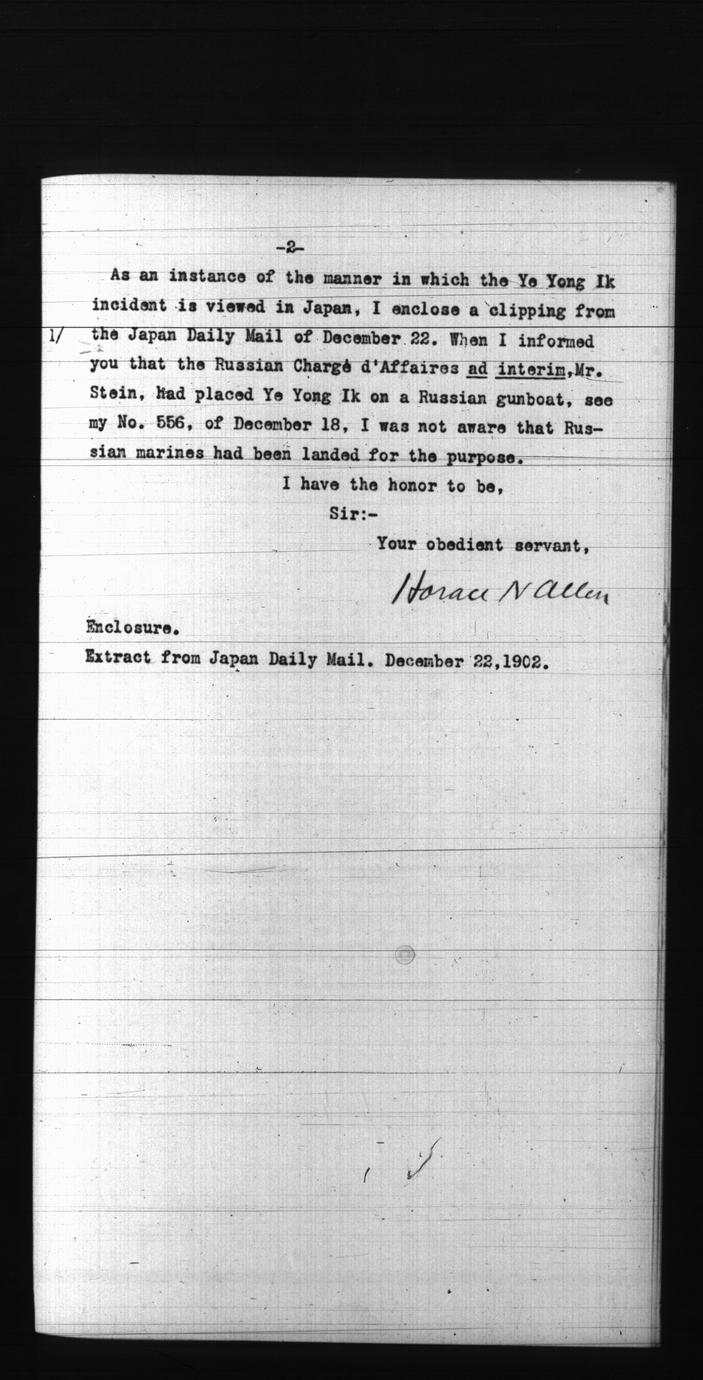 -2-
As an instance of the manner in which the Ye Yong Ik
incident is viewed in Japan, I enclose a clipping from
1/ the Japan Daily Mail of December 22. When I informed
you that the Russian Chargé d'Affaires ad interim,Mr.
Stein, had placed Ye Yong Ik on a Russian gunboat, see
my No. 556, of December 18, I was not aware that Rus-
sian marines had been landed for the purpose.
I have the honor to be,
Sir:-
Your obedient servant,
Horace N Allen
Enclosure.
Extract from Japan Daily Mail. December 22,1902.